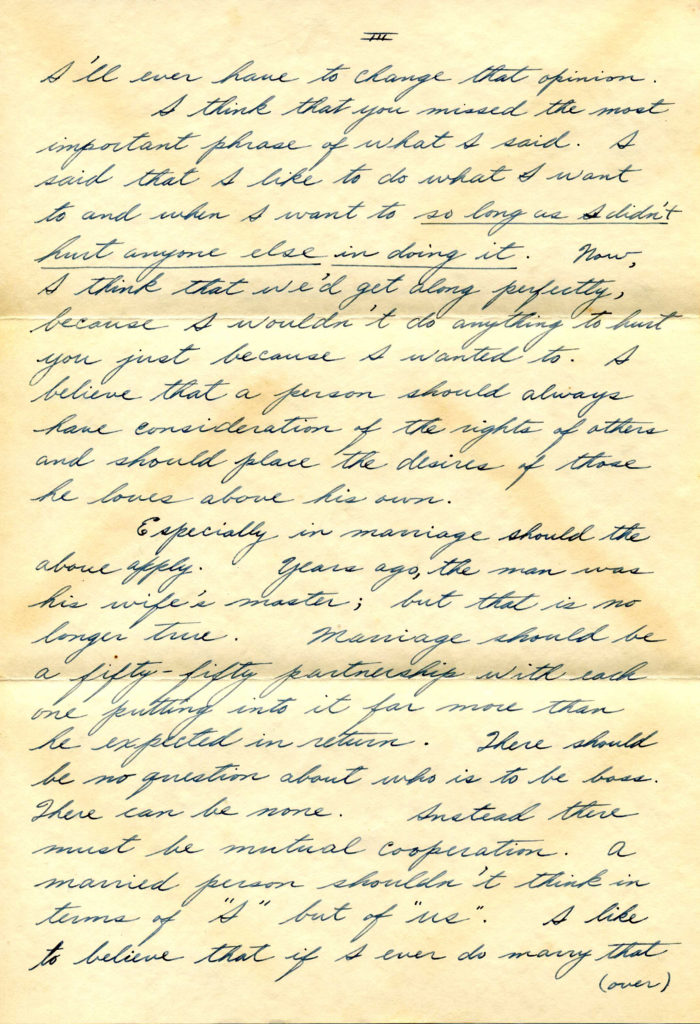 III
I'll ever have to change that opinion.
I think that you missed the most
important phrase of what I said. I
said that I like to do what I want
to and when I want to so long as I didn't
hurt anyone else in doing it. Now,
I think that we'd get along perfectly,
because I wouldn't do anything to hurt
you just because I wanted to. I
believe that a person should always
have consideration of the rights of others
and should place the desires of those
he loves above his own.
Especially in marriage should the
above apply. Years ago, the man was
his wife's master; but that is no
longer true. Marriage should be
a fifty-fifty partnership with each
one putting into it far more than
he expected in return. There should
be no question about who is to be boss.
There can be none. Instead there
must be mutual cooperation. A
married person shouldn't think in
terms of "I" but of "us". I like
to believe that if I ever do marry that
(over)